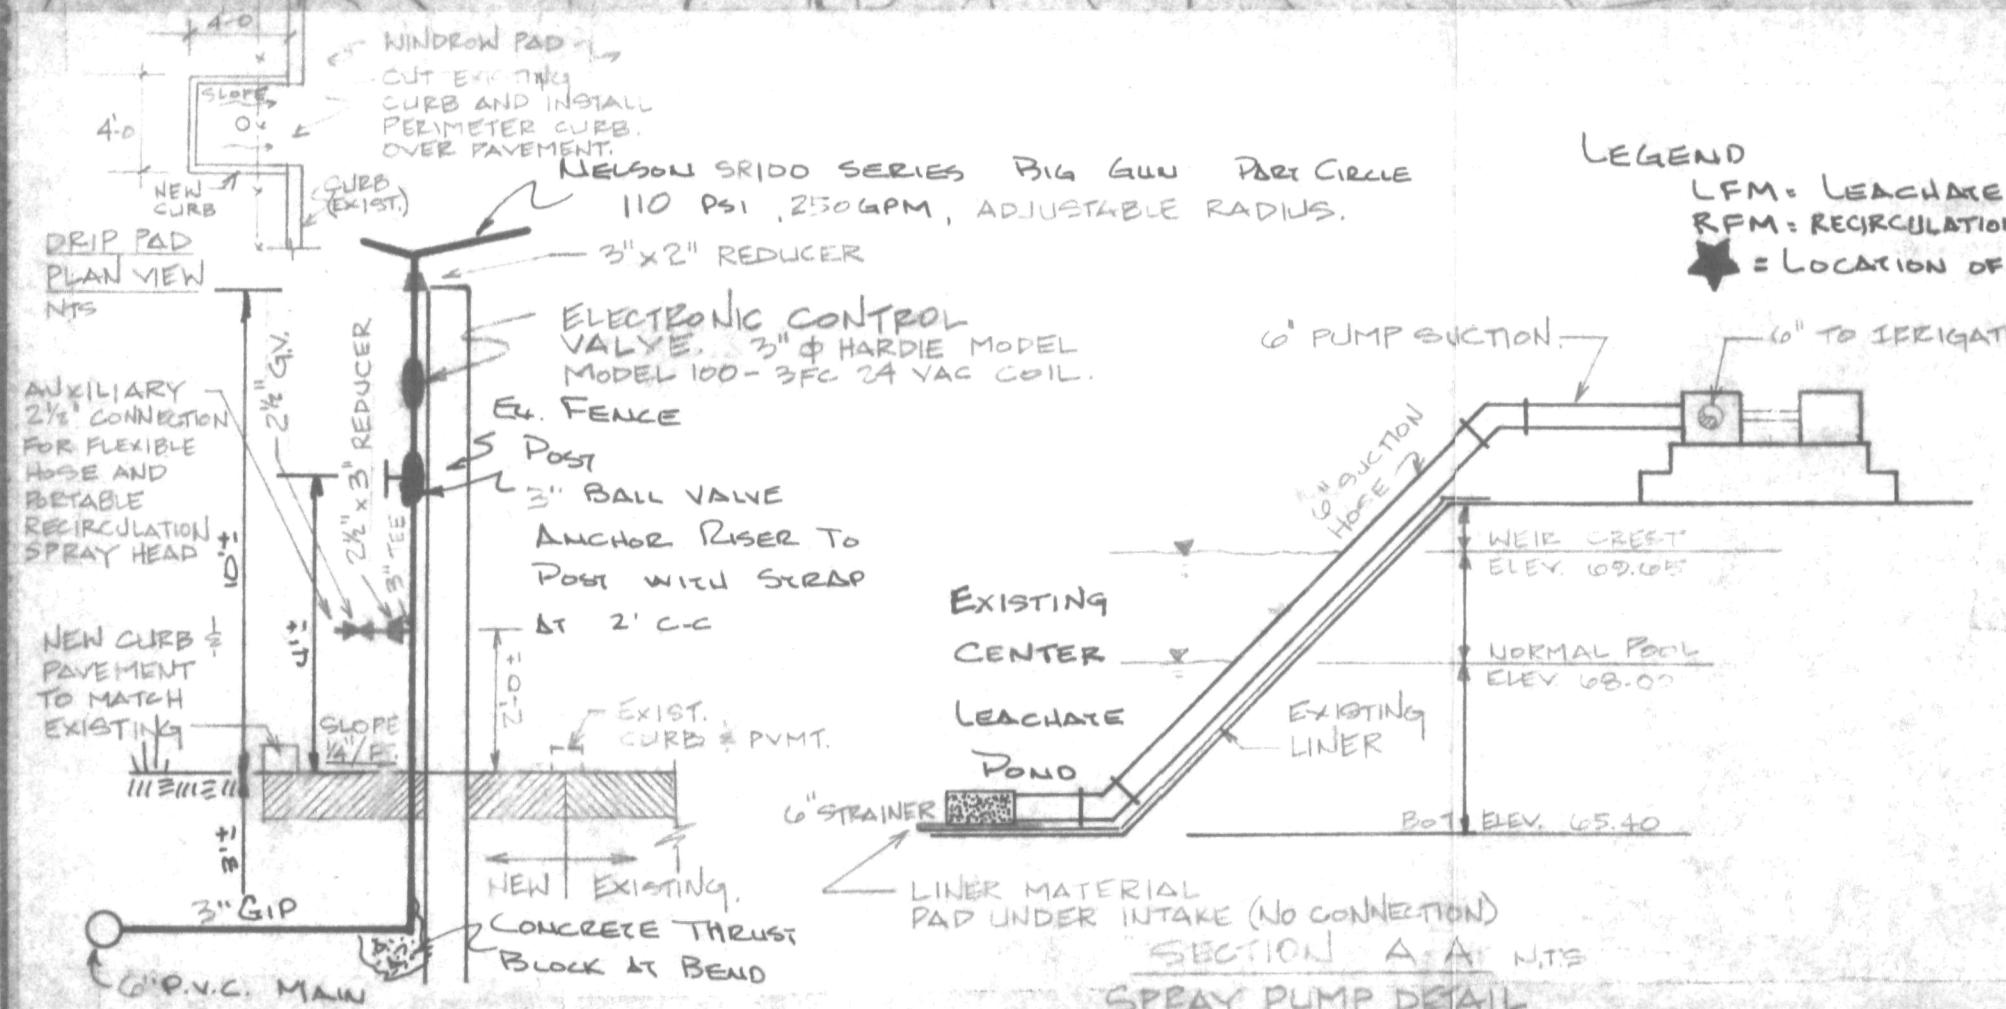 4'-0
WINDROW PAD
CUT EXISTING
CURB AND INSTALL
PERIMETER CURB.
OVER PAVEMENT.
SLOPE
4'-0
NEW
CURB
CURB
(EXIST.)
DRIP PAD
PLAN VIEW
NTS
NELSON SR100 SERIES BIG GUN PART CIRCLE
110 PSI, 250 GPM, ADJUSTABLE RADIUS.
3"x2" REDUCER
ELECTRONIC CONTROL
VALVE. 3"φ HARDIE MODEL
MODEL 100-3FC 24 VAC COIL.
EX. FENCE
POST
3" BALL VALVE
ANCHOR RISER TO
POST WITH STRAP
AT 2' C-C
2½" G.V.
2½" x 3" REDUCER
3" TEE
AUXILIARY
2½" CONNECTION
FOR FLEXIBLE
HOSE AND
PORTABLE
RECIRCULATION
SPRAY HEAD
10'±
4'±
2'-0"±
NEW CURB &
PAVEMENT
TO MATCH
EXISTING
SLOPE
¼"/F.
EXIST.
CURB & PVMT.
3'±
NEW
EXISTING.
3" GIP
CONCRETE THRUST
BLOCK AT BEND
6" P.V.C. MAIN
LEGEND
LFM = LEACHATE
RFM = RECIRCULATION
= LOCATION OF
6" PUMP SUCTION
6" TO IRRIGAT
6" SUCTION
HOSE
WEIR CREST
ELEV. 69.65
NORMAL POOL
ELEV. 68.00
EXISTING
CENTER
LEACHATE
POND
EXISTING
LINER
6" STRAINER
BOT. ELEV. 65.40
LINER MATERIAL
PAD UNDER INTAKE (NO CONNECTION)
SECTION A-A N.T.S
SPRAY PUMP DETAIL